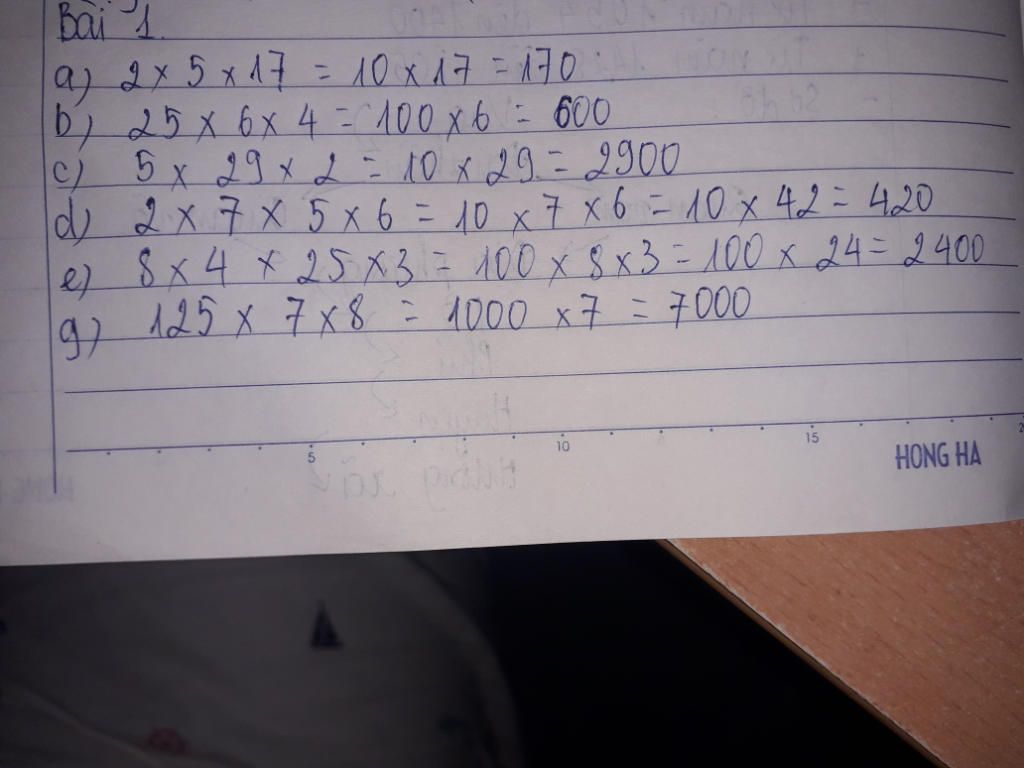 Bài 1.
a) 2 x 5 x 17 = 10 x 17 = 170
b) 25 x 6 x 4 = 100 x 6 = 600
c) 5 x 29 x 2 = 10 x 29 = 2900
d) 2 x 7 x 5 x 6 = 10 x 7 x 6 = 10 x 42 = 420
e) 8 x 4 x 25 x 3 = 100 x 8 x 3 = 100 x 24 = 2400
g) 125 x 7 x 8 = 1000 x 7 = 7000
5 10 15 2
HONG HA